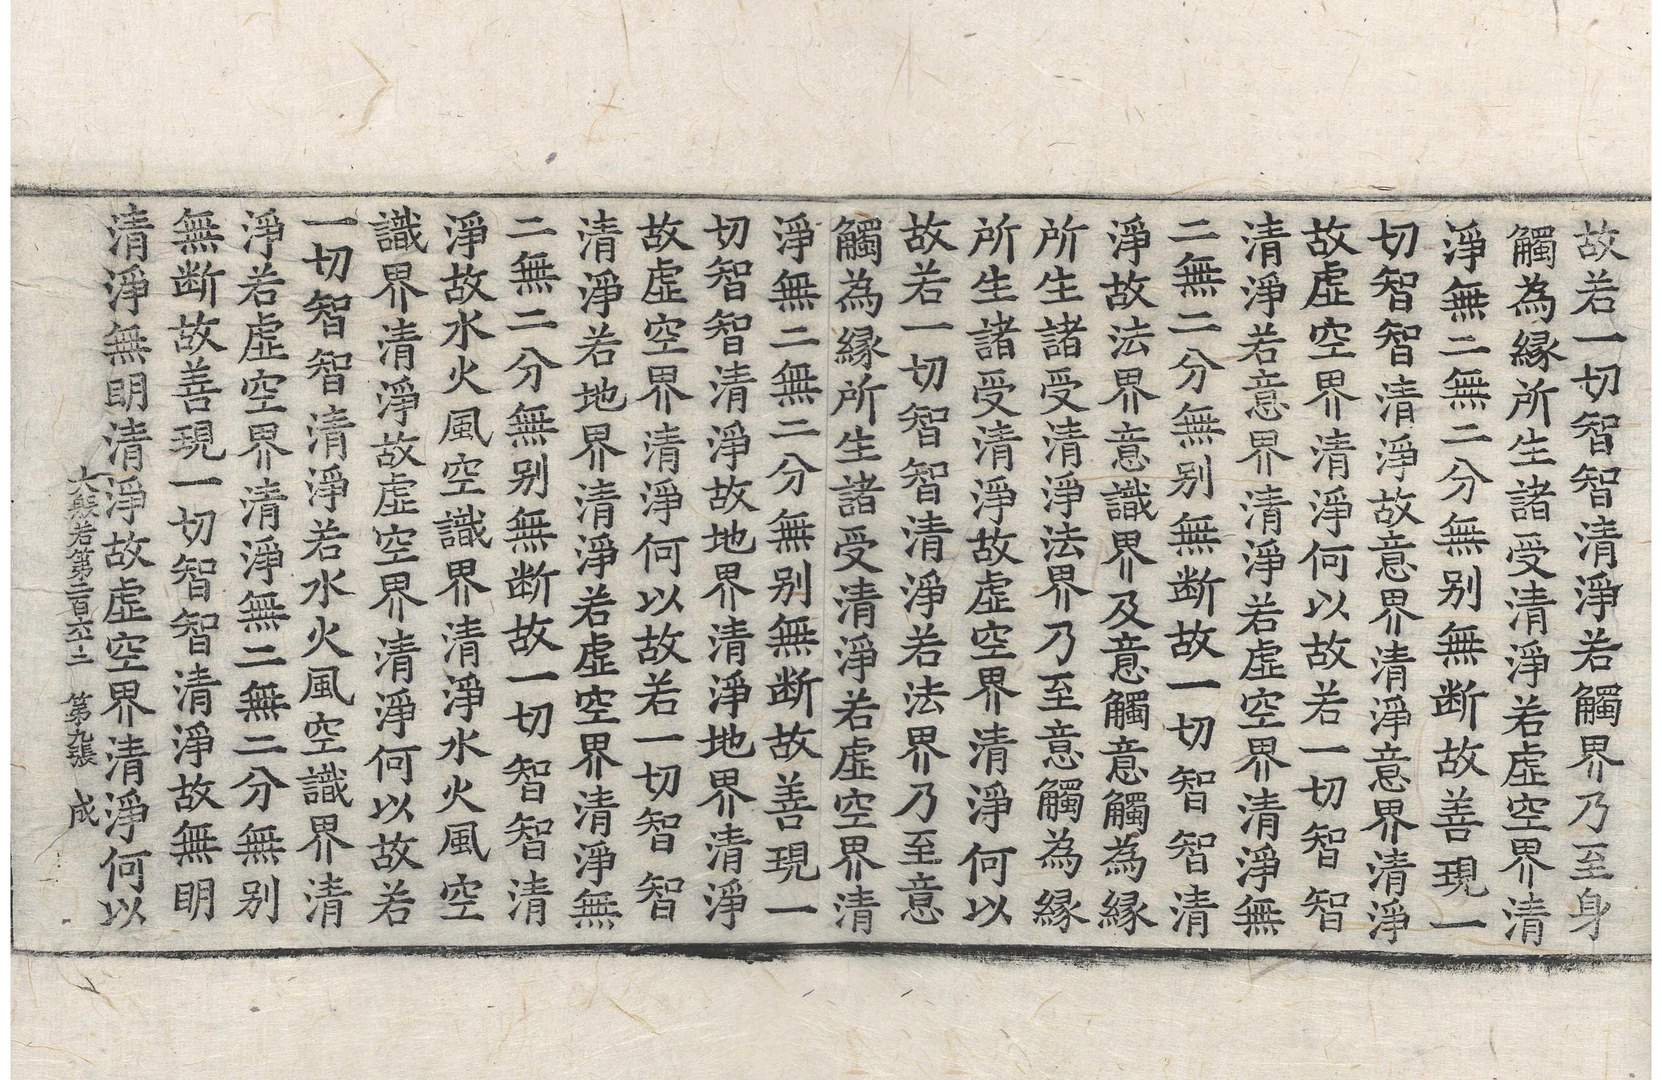 故若一切智智清淨若觸界乃至身
觸為縁所生諸受清淨若虛空界清
淨無二無二分無别無断故善現一
切智智清淨故意界清淨意界清淨
故虛空界清淨何以故若一切智智
清淨若意界清淨若虛空界清淨無
二無二分無别無断故一切智智清
淨故法界意識界及意觸意觸為縁
所生諸受清淨法界乃至意觸為縁
所生諸受清淨故虛空界清淨何以
故若一切智智清淨若法界乃至意
觸為縁所生諸受清淨若虛空界清
淨無二無二分無别無断故善現一
切智智清淨故地界清淨地界清淨
故虛空界清淨何以故若一切智智
清淨若地界清淨若虛空界清淨無
二無二分無别無断故一切智智清
淨故水火風空識界清淨水火風空
識界清淨故虛空界清淨何以故若
一切智智清淨若水火風空識界清
淨若虛空界清淨無二無二分無别
無断故善現一切智智清淨故無明
清淨無明清淨故虛空界清淨何以
大般若第二百六十二 第九張 成